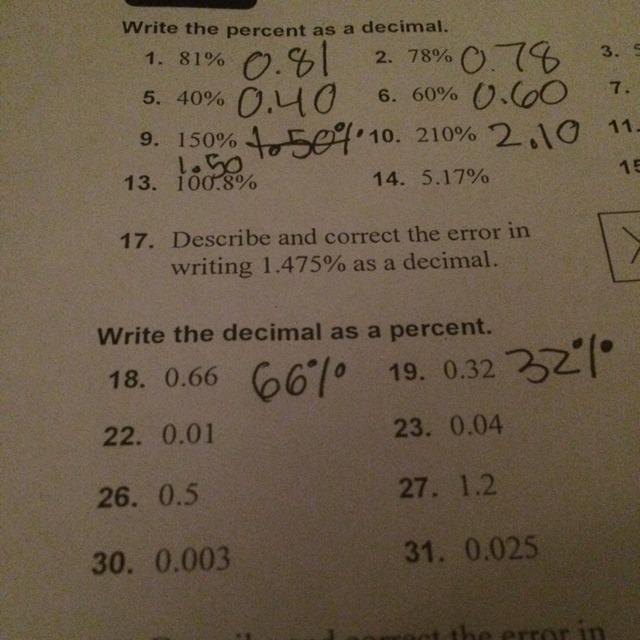 Write the percent as a decimal.
1. 81% 0.81 2. 78% 0.78 3.
5. 40% 0.40 6. 60% 0.60 7.
9. 150% 1.50% 10. 210% 2.10 11.
1.50
13. 100.8% 14. 5.17% 15
17. Describe and correct the error in
writing 1.475% as a decimal.
Write the decimal as a percent.
18. 0.66 66% 19. 0.32 32%
22. 0.01 23. 0.04
26. 0.5 27. 1.2
30. 0.003 31. 0.025
correct the error in